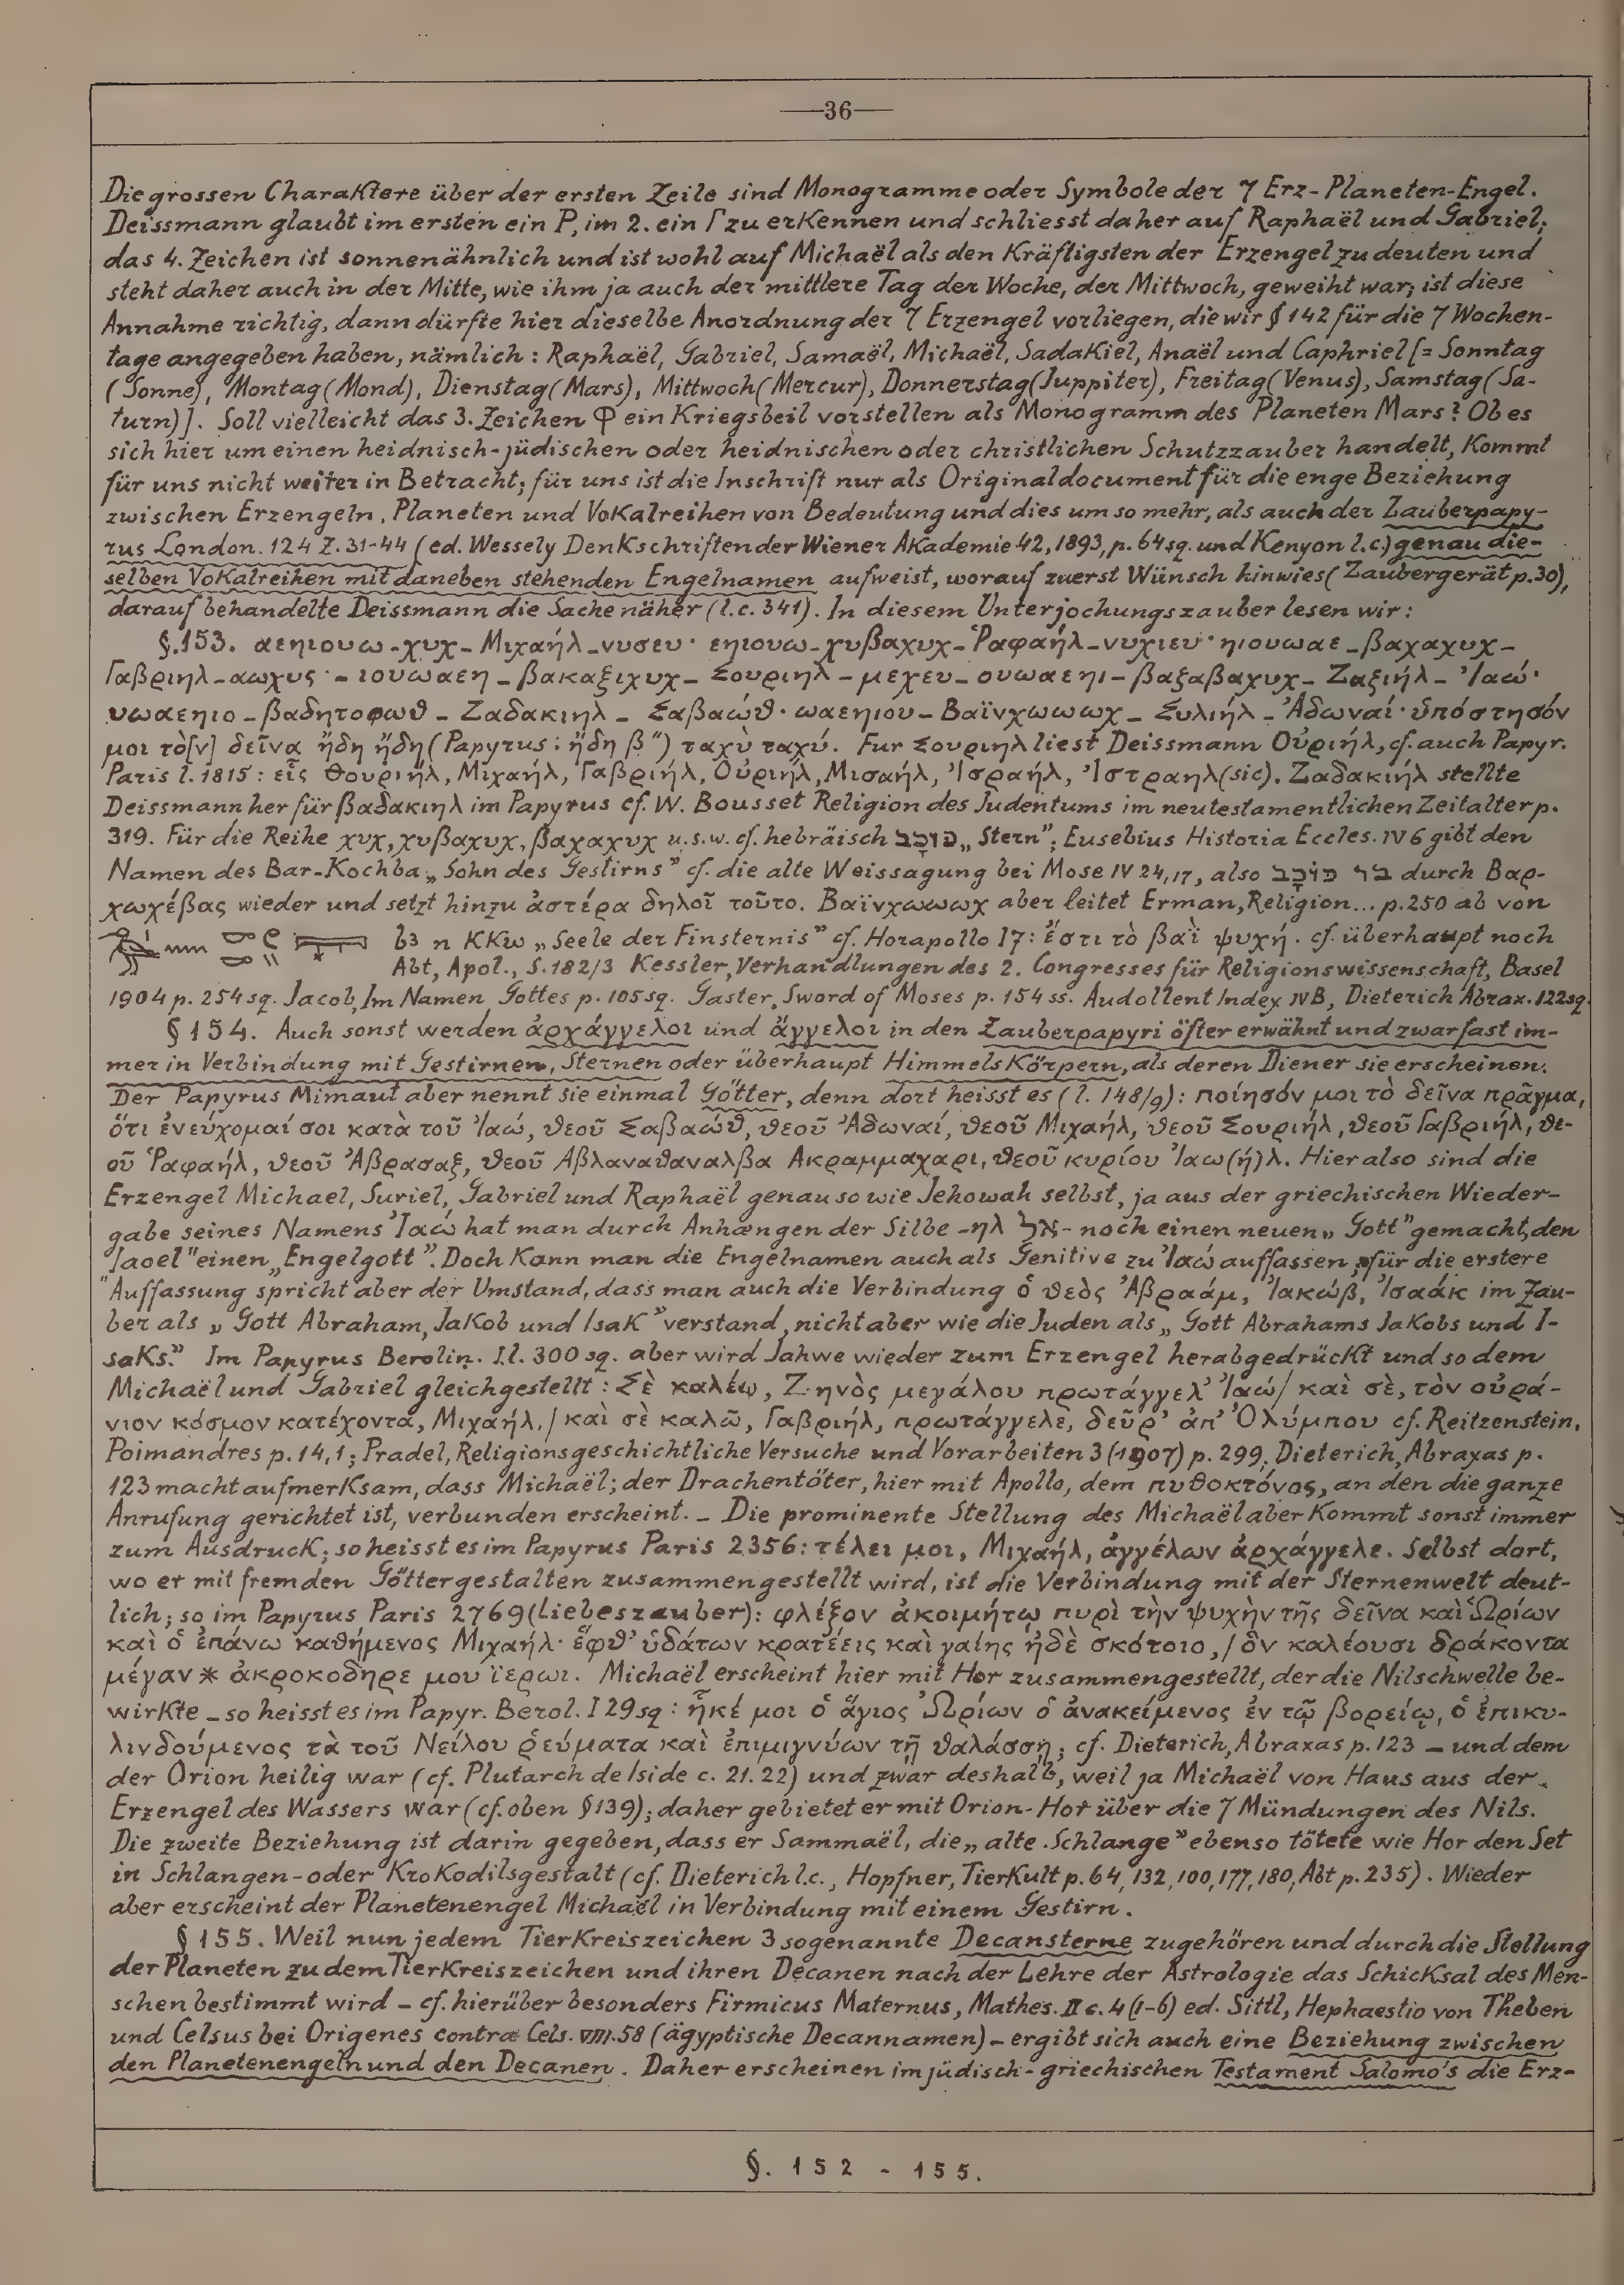 —36—
Die grossen Charaktere über der ersten Zeile sind Monogramme oder Symbole der 7 Erz-Planeten-Engel.
Deissmann glaubt im ersten ein P, im 2. ein Γ zu erkennen und schliesst daher auf Raphaël und Gabriel;
das 4. Zeichen ist sonnenähnlich und ist wohl auf Michaël als den Kräftigsten der Erzengel zu deuten und
steht daher auch in der Mitte, wie ihm ja auch der mittlere Tag der Woche, der Mittwoch, geweiht war; ist diese
Annahme richtig, dann dürfte hier dieselbe Anordnung der 7 Erzengel vorliegen, die wir § 142 für die 7 Wochen-
tage angegeben haben, nämlich: Raphaël, Gabriel, Samaël, Michaël, Sadakiel, Anaël und Caphriel [= Sonntag
(Sonne), Montag (Mond), Dienstag (Mars), Mittwoch (Mercur), Donnerstag (Juppiter), Freitag (Venus), Samstag (Sa-
turn)]. Soll vielleicht das 3. Zeichen Φ ein Kriegsbeil vorstellen als Monogramm des Planeten Mars? Ob es
sich hier um einen heidnisch-jüdischen oder heidnischen oder christlichen Schutzzauber handelt, kommt
für uns nicht weiter in Betracht; für uns ist die Inschrift nur als Originaldocument für die enge Beziehung
zwischen Erzengeln, Planeten und Vokalreihen von Bedeutung und dies um so mehr, als auch der Zauberpapy-
rus London. 124 Z. 31-44 (ed. Wessely Denkschriften der Wiener Akademie 42, 1893, p. 64 sq. und Kenyon l.c.) genau die-
selben Vokalreihen mit daneben stehenden Engelnamen aufweist, worauf zuerst Wünsch hinwies (Zaubergerät p. 30),
darauf behandelte Deissmann die Sache näher (l.c. 341). In diesem Unterjochungszauber lesen wir:
§.153. αεηιουω - χυχ - Μιχαήλ - νυσευ· εηιουω - χυβαχυχ - Ῥαφαήλ - νυχιευ· ηιουωαε - βαχαχυχ -
Γαβριηλ - αωχυς· - ιουωαεη - βακαξιχυχ - Σουριηλ - μεχευ - ουωαεηι - βαξαβαχυχ - Ζαξιήλ - Ἰαώ·
υωαεηιο - βαδητοφωθ - Ζαδακιηλ - Σαβαώθ· ωαεηιου - Βαϊνχωωωχ - Συλιήλ - Ἀδωναί· ὑπόστησόν
μοι τὸ[ν] δεῖνα ἤδη ἤδη (Papyrus: ἤδη β″) ταχὺ ταχύ. Fur Σουριηλ liest Deissmann Οὐριήλ, cf. auch Papyr.
Paris l. 1815: εἷς Θουριήλ, Μιχαήλ, Γαβριήλ, Οὐριήλ, Μισαήλ, Ἰσραήλ, Ἰστραηλ (sic). Ζαδακιήλ stellte
Deissmann her für βαδακιηλ im Papyrus cf. W. Bousset Religion des Judentums im neutestamentlichen Zeitalter p.
319. Für die Reihe χυχ, χυβαχυχ, βαχαχυχ u.s.w. cf. hebräisch כּוֹכָב „Stern"; Eusebius Historia Eccles. IV 6 gibt den
Namen des Bar-Kochba „Sohn des Gestirns" cf. die alte Weissagung bei Mose IV 24,17, also בר כּוֹכָב durch Βαρ-
χωχέβας wieder und setzt hinzu ἀστέρα δηλοῖ τοῦτο. Βαϊνχωωωχ aber leitet Erman, Religion... p. 250 ab von
b3 n KKω „Seele der Finsternis" cf. Horapollo I 7: ἔστι τὸ βαῒ ψυχή. cf. überhaupt noch
Abt, Apol., S. 182/3 Kessler, Verhandlungen des 2. Congresses für Religionswissenschaft, Basel
1904 p. 254 sq. Jacob, Im Namen Gottes p. 105 sq. Gaster, Sword of Moses p. 154 ss. Audollent Index IV B, Dieterich Abrax. 122 sq.
§ 154. Auch sonst werden ἀρχάγγελοι und ἄγγελοι in den Zauberpapyri öfter erwähnt und zwar fast im-
mer in Verbindung mit Gestirnen, Sternen oder überhaupt Himmelskörpern, als deren Diener sie erscheinen.
Der Papyrus Mimaut aber nennt sie einmal Götter, denn dort heisst es (l. 148/9): ποίησόν μοι τὸ δεῖνα πρᾶγμα,
ὅτι ἐνεύχομαί σοι κατὰ τοῦ Ἰαώ, θεοῦ Σαβαώθ, θεοῦ Ἀδωναί, θεοῦ Μιχαήλ, θεοῦ Σουριήλ, θεοῦ Γαβριήλ, θε-
οῦ Ῥαφαήλ, θεοῦ Ἀβρασαξ, θεοῦ Αβλαναθαναλβα Ακραμμαχαρι, θεοῦ κυρίου Ἰαω(ή)λ. Hier also sind die
Erzengel Michael, Suriel, Gabriel und Raphaël genau so wie Jehowah selbst, ja aus der griechischen Wieder-
gabe seines Namens Ἰαώ hat man durch Anhængen der Silbe -ηλ אל- noch einen neuen „Gott" gemacht, den
„Jaoel" einen „Engelgott". Doch kann man die Engelnamen auch als Genitive zu Ἰαώ auffassen; für die erstere
Auffassung spricht aber der Umstand, dass man auch die Verbindung ὁ θεὸς Ἀβραάμ, Ἰακώβ, Ἰσαάκ im Zau-
ber als „Gott Abraham, Jakob und Isak" verstand, nicht aber wie die Juden als „Gott Abrahams Jakobs und I-
saks." Im Papyrus Berolin. I l. 300 sq. aber wird Jahwe wieder zum Erzengel herabgedrückt und so dem
Michaël und Gabriel gleichgestellt: Σὲ καλέω, Ζηνὸς μεγάλου πρωτάγγελ' Ἰαώ / καὶ σὲ, τὸν οὐρά-
νιον κόσμον κατέχοντα, Μιχαήλ, / καὶ σὲ καλῶ, Γαβριήλ, πρωτάγγελε, δεῦρ' ἀπ' Ὀλύμπου cf. Reitzenstein,
Poimandres p. 14,1; Pradel, Religionsgeschichtliche Versuche und Vorarbeiten 3 (1907) p. 299. Dieterich, Abraxas p.
123 macht aufmerksam, dass Michaël; der Drachentöter, hier mit Apollo, dem πυθοκτόνος, an den die ganze
Anrufung gerichtet ist, verbunden erscheint. – Die prominente Stellung des Michaël aber kommt sonst immer
zum Ausdruck; so heisst es im Papyrus Paris 2356: τέλει μοι, Μιχαήλ, ἀγγέλων ἀρχάγγελε. Selbst dort,
wo er mit fremden Göttergestalten zusammengestellt wird, ist die Verbindung mit der Sternenwelt deut-
lich; so im Papyrus Paris 2769 (Liebeszauber): φλέξον ἀκοιμήτῳ πυρὶ τὴν ψυχὴν τῆς δεῖνα καὶ Ὠρίων
καὶ ὁ ἐπάνω καθήμενος Μιχαήλ· ἕφθ' ὑδάτων κρατέεις καὶ γαίης ἠδὲ σκότοιο, / ὃν καλέουσι δράκοντα
μέγαν * ἀκροκοδηρε μου ϊερωι. Michaël erscheint hier mit Hor zusammengestellt, der die Nilschwelle be-
wirkte – so heisst es im Papyr. Berol. I 29 sq: ἧκέ μοι ὁ ἅγιος Ὠρίων ὁ ἀνακείμενος ἐν τῷ βορείῳ, ὁ ἐπικυ-
λινδούμενος τὰ τοῦ Νείλου ῥεύματα καὶ ἐπιμιγνύων τῇ θαλάσσῃ; cf. Dieterich, Abraxas p. 123 – und dem
der Orion heilig war (cf. Plutarch de Iside c. 21.22) und zwar deshalb, weil ja Michaël von Haus aus der
Erzengel des Wassers war (cf. oben § 139); daher gebietet er mit Orion-Hor über die 7 Mündungen des Nils.
Die zweite Beziehung ist darin gegeben, dass er Sammaël, die „alte Schlange" ebenso tötete wie Hor den Set
in Schlangen- oder Krokodilsgestalt (cf. Dieterich l.c., Hopfner, Tierkult p. 64, 132, 100, 177, 180, Abt p. 235). Wieder
aber erscheint der Planetenengel Michaël in Verbindung mit einem Gestirn.
§ 155. Weil nun jedem Tierkreiszeichen 3 sogenannte Decansterne zugehören und durch die Stellung
der Planeten zu dem Tierkreiszeichen und ihren Decanen nach der Lehre der Astrologie das Schicksal des Men-
schen bestimmt wird – cf. hierüber besonders Firmicus Maternus, Mathes. II c. 4 (1-6) ed. Sittl, Hephaestio von Theben
und Celsus bei Origenes contra Cels. VIII. 58 (ägyptische Decannamen) – ergibt sich auch eine Beziehung zwischen
den Planetenengeln und den Decanen. Daher erscheinen im jüdisch-griechischen Testament Salomo's die Erz-
§. 152 - 155.